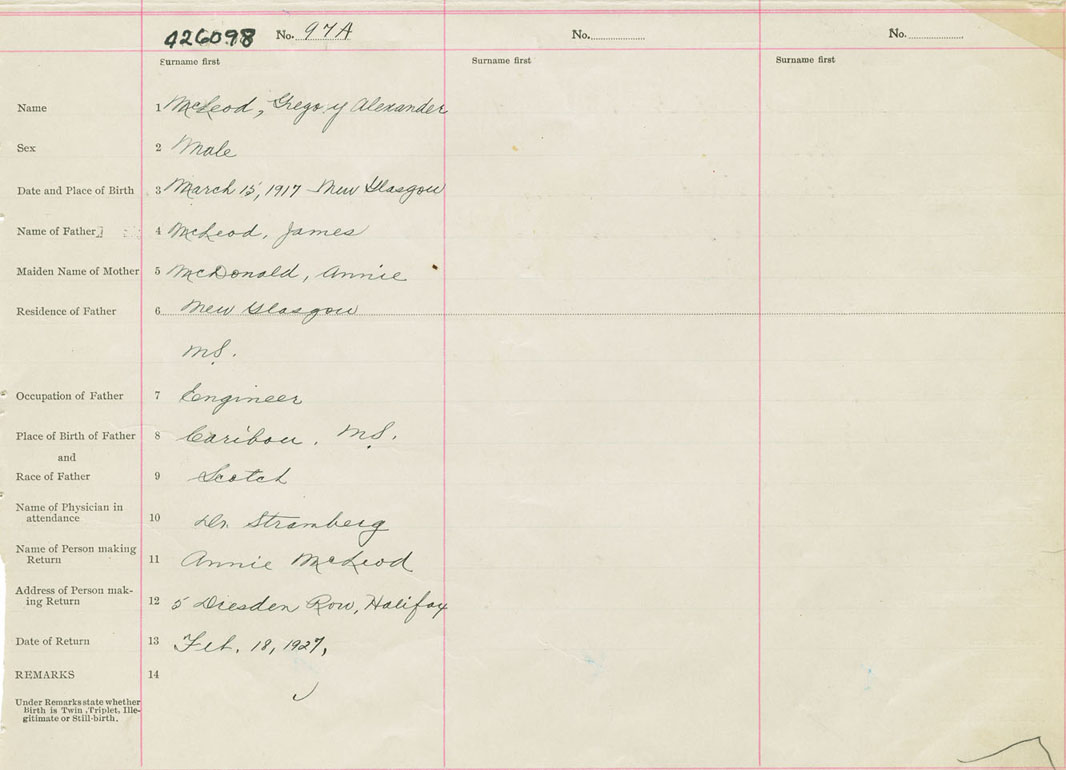 426098 No. 97A No. No.
Surname first Surname first Surname first
Name 1 McLeod, Gregory Alexander
Sex 2 Male
Date and Place of Birth 3 March 15, 1917 New Glasgow
Name of Father 4 McLeod, James
Maiden Name of Mother 5 McDonald, Annie
Residence of Father 6 New Glasgow
N.S.
Occupation of Father 7 Engineer
Place of Birth of Father 8 Caribou. N.S.
and
Race of Father 9 Scotch
Name of Physician in
attendance 10 Dr. Stramberg
Name of Person making
Return 11 Annie McLeod
Address of Person mak-
ing Return 12 5 Dresden Row, Halifax
Date of Return 13 Feb. 18, 1927,
REMARKS 14
Under Remarks state whether
Birth is Twin, Triplet, Ille-
gitimate or Still-birth.